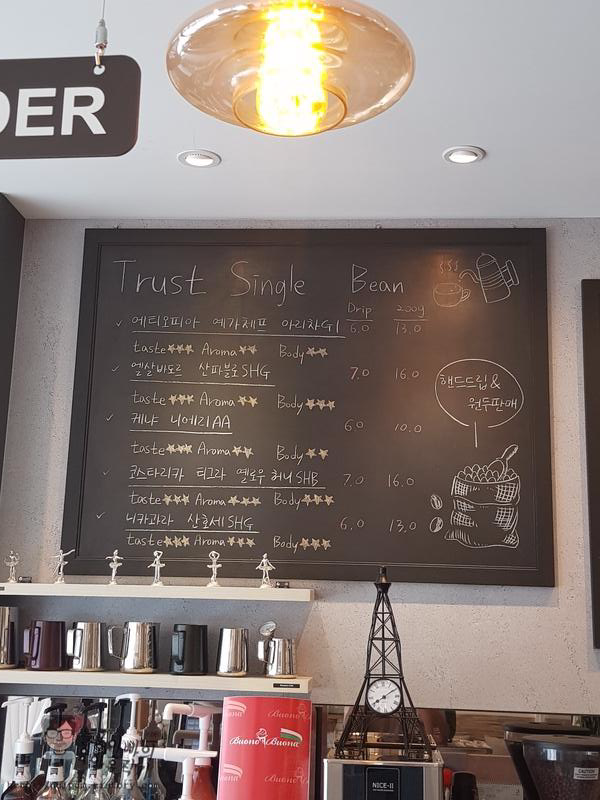 DER
Trust Single Bean
Drip 200g
✓ 에티오피아 예가체프 아리차G1 6.0 13.0
taste★★★ Aroma★★ Body★★
✓ 엘살바도르 산파블로SHG 7.0 16.0
taste★★★ Aroma★★ Body★★★
✓ 케냐 니에리AA 6.0 10.0
taste★★★ Aroma★★ Body★★
✓ 코스타리카 티그라 옐로우 허니 SHB 7.0 16.0
taste★★★ Aroma★★★ Body★★★
✓ 니카과라 산호세SHG 6.0 13.0
taste★★★ Aroma★★★ Body★★★
핸드드립&
원두판매
Buono Buona
NICE-II
CAUTION